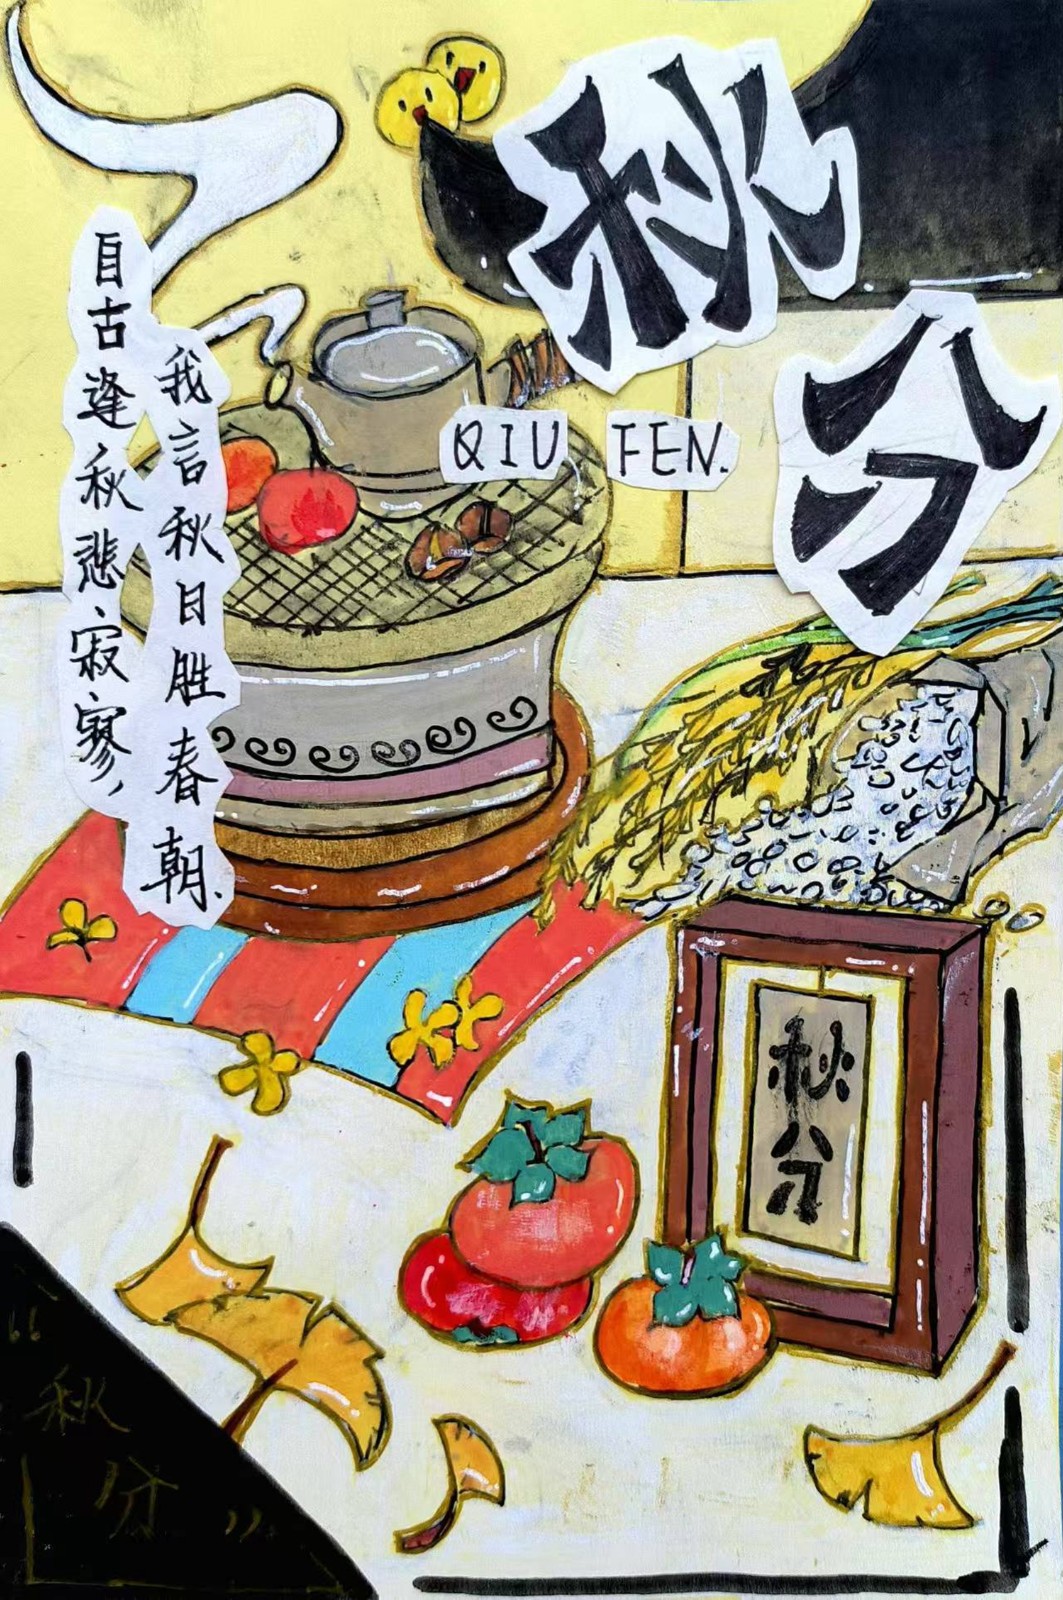 秋分
QIU FEN.
自古逢秋悲、寂、寥，
我言秋日胜春朝.
秋分
“秋分”